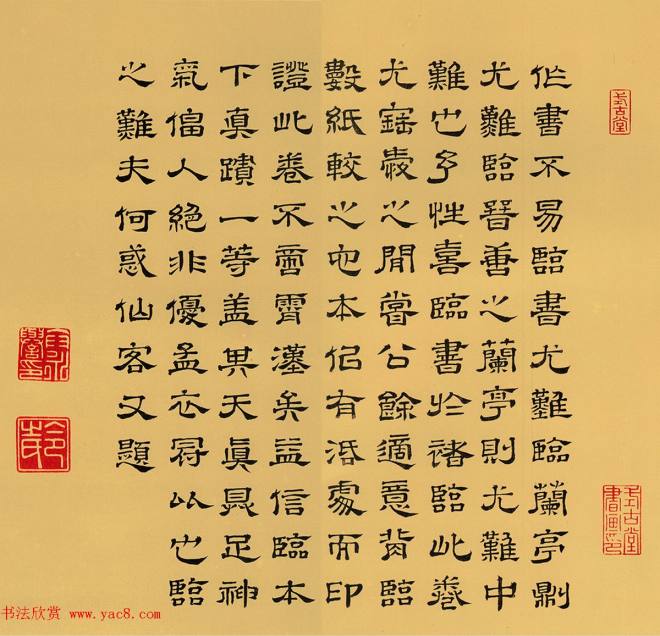 式古堂
作書不易臨書尤難臨蘭亭則
尤難臨晉善之蘭亭則尤難中
難也予性喜臨書於諸臨此卷
尤之間嘗公餘適意背臨
數紙較之他本似有活處而印
證此卷不啻霄漢矣益信臨本
下真蹟一等蓋其天真具足神
氣偪人絕非優孟衣冠比也臨
之難夫何惑仙客又題
式古堂書畫印
书法欣赏 www.yac8.com